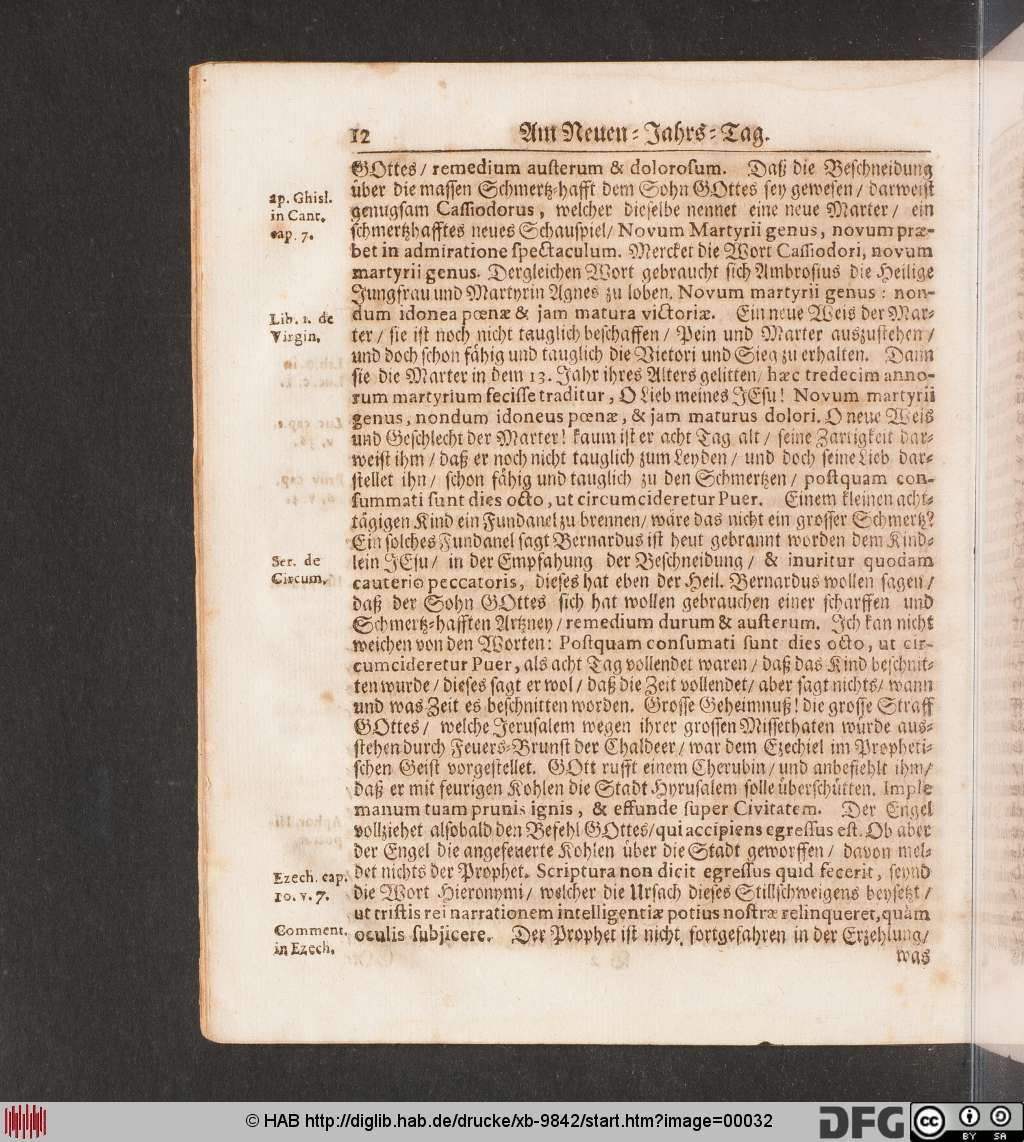 12 Am Neuen-Jahrs-Tag.
GOttes / remedium austerum & dolorosum. Daß die Beschneidung
über die massen Schmertz-hafft dem Sohn GOttes sey gewesen / darweist
ap. Ghisl.
in Cant.
cap. 7.
genugsam Cassiodorus, welcher dieselbe nennet eine neue Marter / ein
schmertzhafftes neues Schauspiel / Novum Martyrii genus, novum præ-
bet in admiratione spectaculum. Mercket die Wort Cassiodori, novum
martyrii genus. Dergleichen Wort gebraucht sich Ambrosius die Heilige
Jungfrau und Martyrin Agnes zu loben. Novum martyrii genus: non-
Lib. 1. de
Virgin.
dum idonea pœnæ & jam matura victoriæ. Ein neue Weis der Mar-
ter / sie ist noch nicht tauglich beschaffen / Pein und Marter auszustehen /
und doch schon fähig und tauglich die Victori und Sieg zu erhalten. Dann
sie die Marter in dem 13. Jahr ihres Alters gelitten / hæc tredecim anno-
rum martyrium fecisse traditur, O Lieb meines JEsu! Novum martyrii
genus, nondum idoneus pœnæ, & jam maturus dolori. O neue Weis
und Geschlecht der Marter! kaum ist er acht Tag alt / seine Zartigkeit dar-
weist ihm / daß er noch nicht tauglich zum Leyden / und doch seine Lieb dar-
stellet ihn / schon fähig und tauglich zu den Schmertzen / postquam con-
summati sunt dies octo, ut circumcideretur Puer. Einem kleinen acht-
tägigen Kind ein Fundanel zu brennen / wäre das nicht ein grosser Schmertz?
Ein solches Fundanel sagt Bernardus ist heut gebrannt worden dem Kind-
Ser. de
Circum.
lein JEsu / in der Empfahung der Beschneidung / & inuritur quodam
cauterio peccatoris, dieses hat eben der Heil. Bernardus wollen sagen /
daß der Sohn GOttes sich hat wollen gebrauchen einer scharffen und
Schmertz-hafften Artzney / remedium durum & austerum. Ich kan nicht
weichen von den Worten: Postquam consumati sunt dies octo, ut cir-
cumcideretur Puer, als acht Tag vollendet waren / daß das Kind beschnit-
ten wurde / dieses sagt er wol / daß die Zeit vollendet / aber sagt nichts / wann
und was Zeit es beschnitten worden. Grosse Geheimnuß! die grosse Straff
GOttes / welche Jerusalem wegen ihrer grossen Missethaten würde aus-
stehen durch Feuers-Brunst der Chaldeer / war dem Ezechiel im Propheti-
schen Geist vorgestellet. GOtt rufft einem Cherubin / und anbefiehlt ihm /
daß er mit feurigen Kohlen die Stadt Hyrusalem solle überschütten. Imple
manum tuam prunis ignis, & effunde super Civitatem. Der Engel
vollziehet alsobald den Befehl GOttes / qui accipiens egressus est. Ob aber
der Engel die angefeuerte Kohlen über die Stadt geworffen / davon mel-
Ezech. cap.
10. v. 7.
det nichts der Prophet. Scriptura non dicit egressus quid fecerit, seynd
die Wort Hieronymi / welcher die Ursach dieses Stillschweigens beysetzt /
ut tristis rei narrationem intelligentiæ potius nostræ relinqueret, quàm
Comment.
in Ezech.
oculis subjicere. Der Prophet ist nicht fortgefahren in der Erzehlung /
was
© HAB http://diglib.hab.de/drucke/xb-9842/start.htm?image=00032
DFG
cc BY SA